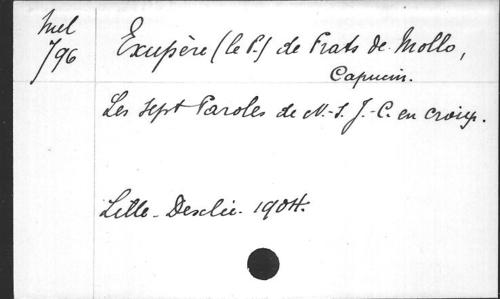 Mel
796
Exupère (le P.) de Prats de Mollo,
Capucin.
Les sept Paroles de N.-S. J.-C. en croix.
Lille - Desclée. 1904.